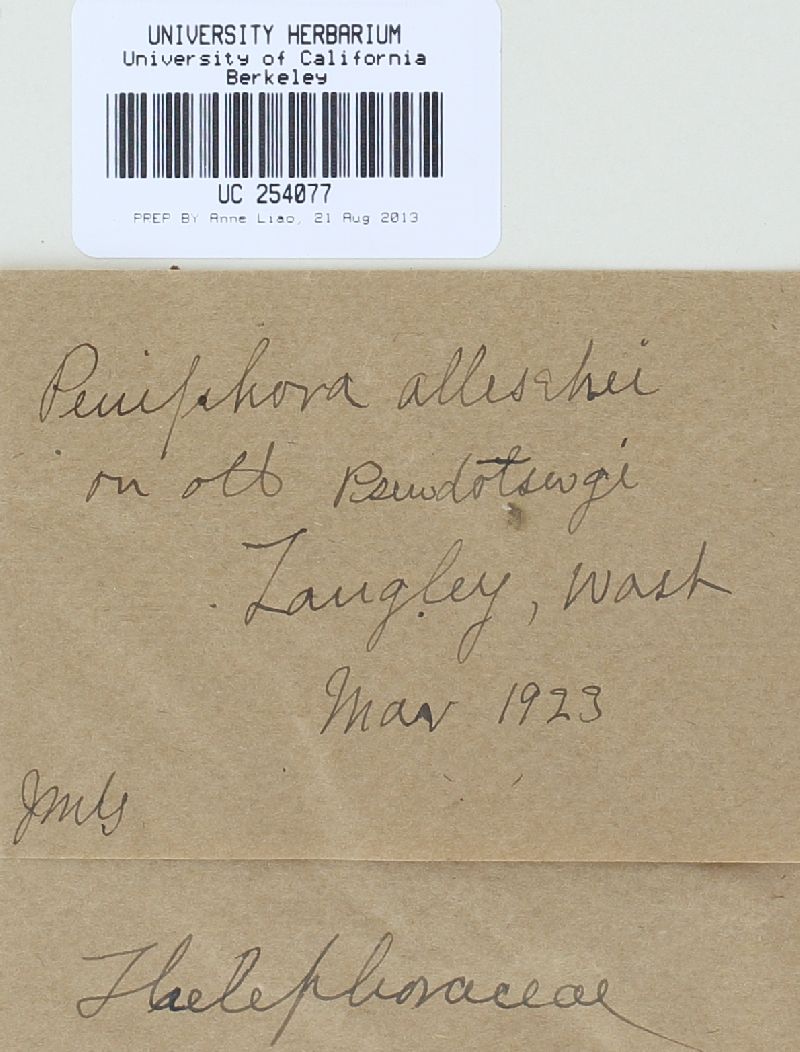 UNIVERSITY HERBARIUM
University of California
Berkeley
UC 254077
PREP BY Anne Liao, 21 Aug 2013
Peniphora alleschei
on old Pseudotsugi
Langley, Wash
Mar 1923
Thelephoraceae